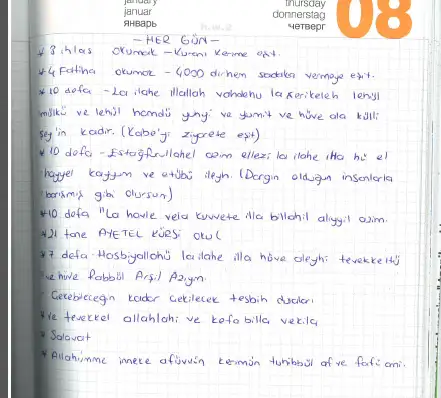 january
januar
январь
thursday
donnerstag
четверг
08
- HER GÜN -
* 3 ihlas okumak - Kuranı Kerime eşit.
* 4 Fatiha okumak - 4000 dirhem sadaka vermeye eşit.
* 10 defa - La ilahe illallah vahdehu la şerikeleh lehül
mülkü ve lehül hamdü yuhyi ve yumit ve hüve ala külli
şey'in kadir. (Kabe'yi ziyarete eşit)
* 10 defa - Estağfirullahel azim ellezi la ilahe illa hu el
hayyel kayyum ve etübü ileyh. (Dargın olduğun insanlarla
barışmış gibi olursun)
* 10 defa "La havle vela kuvvete illa billahil aliyyil azim.
* 21 tane AYETEL KÜRSİ oku(
* 7 defa - Hasbiyallahü la ilahe illa hüve aleyhi tevekkeltü
ve hüve Rabbül Arşil Azıym.
Çekebileceğin kadar çekilecek tesbih duaları
* Ve tevekkel allahlahi ve kefa billa vekila
* Salavat
* Allahümme inneke afüvvün kerimün tuhibbül afve fafu anni.